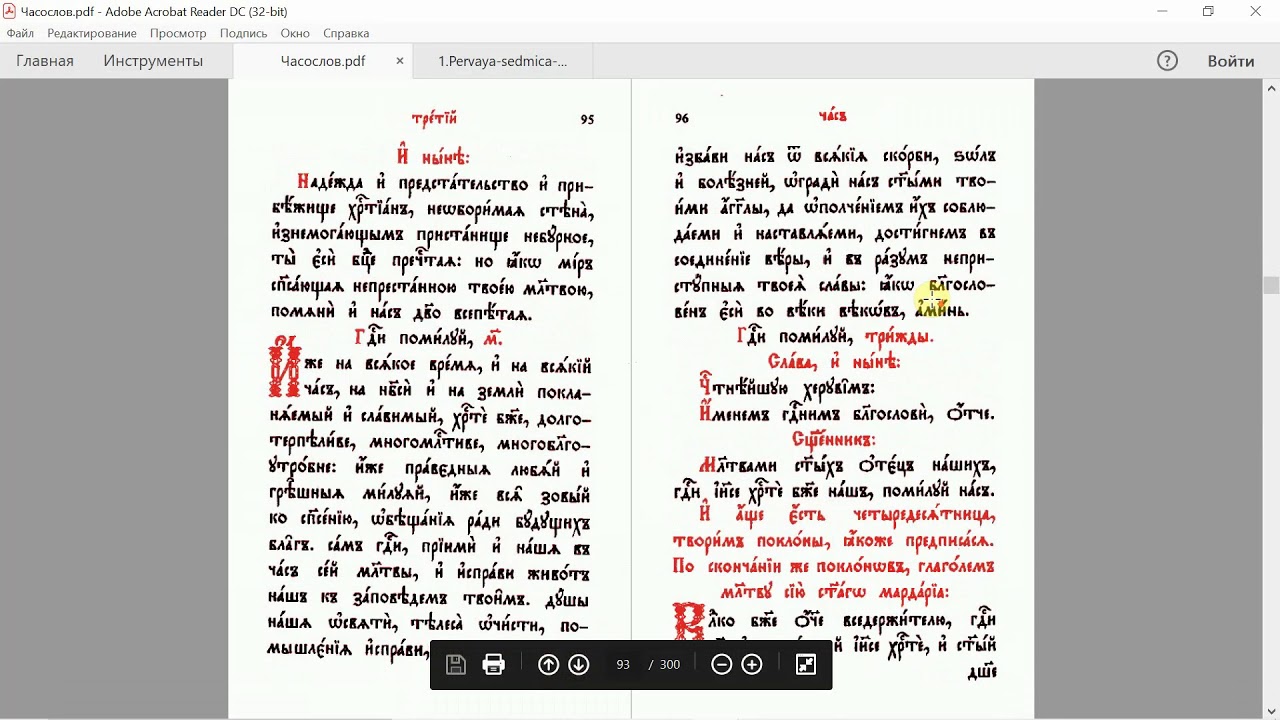 Часослов.pdf - Adobe Acrobat Reader DC (32-bit)
Файл Редактирование Просмотр Подпись Окно Справка
Главная Инструменты Часослов.pdf × 1.Pervaya-sedmica-... ? Войти
тре́тїй 95
И҆ ны́нѣ:
Наде́жда и҆ предста́тельство и҆ при-
бѣ́жище хрⷭ҇тїа́нъ, неѡбори́маѧ стѣна̀,
и҆знемога́ющымъ приста́нище небꙋ́рное,
ты̀ є҆сѝ бцⷣе пречⷭ҇таѧ: но ꙗ҆́кѡ мі́ръ
сп҃са́ющаѧ непреста́нною твое́ю мл҃твою,
помѧнѝ и҆ на́съ дв҃о всепѣ́таѧ.
Гдⷭ҇и поми́лꙋй, м҃.
И҆́же на всѧ́кое вре́мѧ, и҆ на всѧ́кїй
ча́съ, на нб҃сѝ и҆ на землѝ покла-
нѧ́емый и҆ сла́вимый, хрⷭ҇тѐ бж҃е, долго-
терпѣли́ве, многомлⷭ҇тиве, многоблг҃о-
ꙋтро́бне: и҆́же пра́вєдныѧ любѧ́й и҆
грѣ̑шныѧ ми́лꙋѧй, и҆́же всѧ̑ зовы́й
ко сп҃се́нїю, ѡ҆бѣща́нїѧ ра́ди бꙋ́дꙋщихъ
бла̑гъ. са́мъ гдⷭ҇и, прїимѝ и҆ на́шѧ въ
ча́съ се́й мл҃твы, и҆ и҆спра́ви живо́тъ
на́шъ къ за́повѣдемъ твои̑мъ. дꙋ́шы
на́шѧ ѡ҆свѧтѝ, тѣлеса̀ ѡ҆чи́сти, по-
мышлє́нїѧ и҆спра́ви,
96 ча́съ
и҆зба́ви на́съ ѿ всѧ́кїѧ ско́рби, ѕѡ́лъ
и҆ болѣ́зней, ѡ҆градѝ на́съ ст҃ы́ми тво-
и́ми а҆́гг҃лы, да ѡ҆полче́нїемъ и҆́хъ соблю-
да́еми и҆ наставлѧ́еми, дости́гнемъ въ
соедине́нїе вѣ́ры, и҆ въ ра́зꙋмъ непри-
стꙋ́пныѧ твоеѧ̀ сла́вы: ꙗ҆́кѡ блг҃осло-
ве́нъ є҆сѝ во вѣ́ки вѣкѡ́въ, а҆ми́нь.
Гдⷭ҇и поми́лꙋй, три́жды.
Сла́ва, и҆ ны́нѣ:
Чⷭ҇тнѣ́йшꙋю херꙋві̑мъ:
И҆́менемъ гдⷭ҇нимъ блг҃ословѝ, ѻ҆́тче.
Сщ҃е́нникъ:
Мл҃твами ст҃ы́хъ ѻ҆тє́цъ на́шихъ,
гдⷭ҇и і҆и҃се хрⷭ҇тѐ бж҃е на́шъ, поми́лꙋй на́съ.
И҆ а҆́ще є҆́сть четыредесѧ́тница,
твори́мъ поклѡ́ны, ꙗ҆́коже предписа́сѧ.
По сконча́нїи же поклѡ́нѡвъ, глаго́лемъ
мл҃твꙋ сїю̀ ст҃а́гѡ марда́рїа:
Влⷣко бж҃е ѻ҆́ч҃е вседержи́телю, гдⷭ҇и
й і҆и҃се хрⷭ҇тѐ, и҆ ст҃ы́й
дш҃е
93 / 300